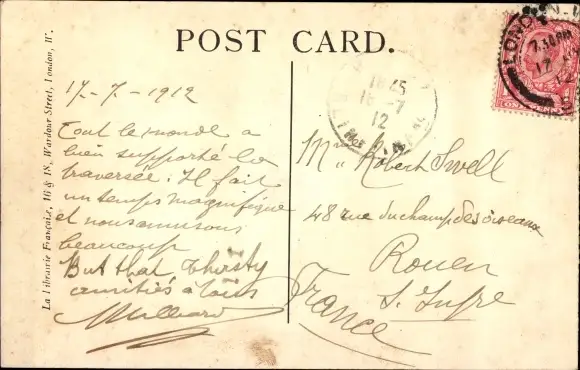 POST CARD.
La Librairie Française, 16 & 18, Wardour Street, London, W.
17-7-1912
Tout le monde a
bien supporté la
traversée. Il fait
un temps magnifique
et nous amusons
beaucoup
But that thirsty
amitiés à tous
LONDON, W.
7.30 PM
17
12
ONE PENNY
1645
18-7
12
Robert Swell
48 rue du champ des oiseaux
Rouen
S. Infre
France